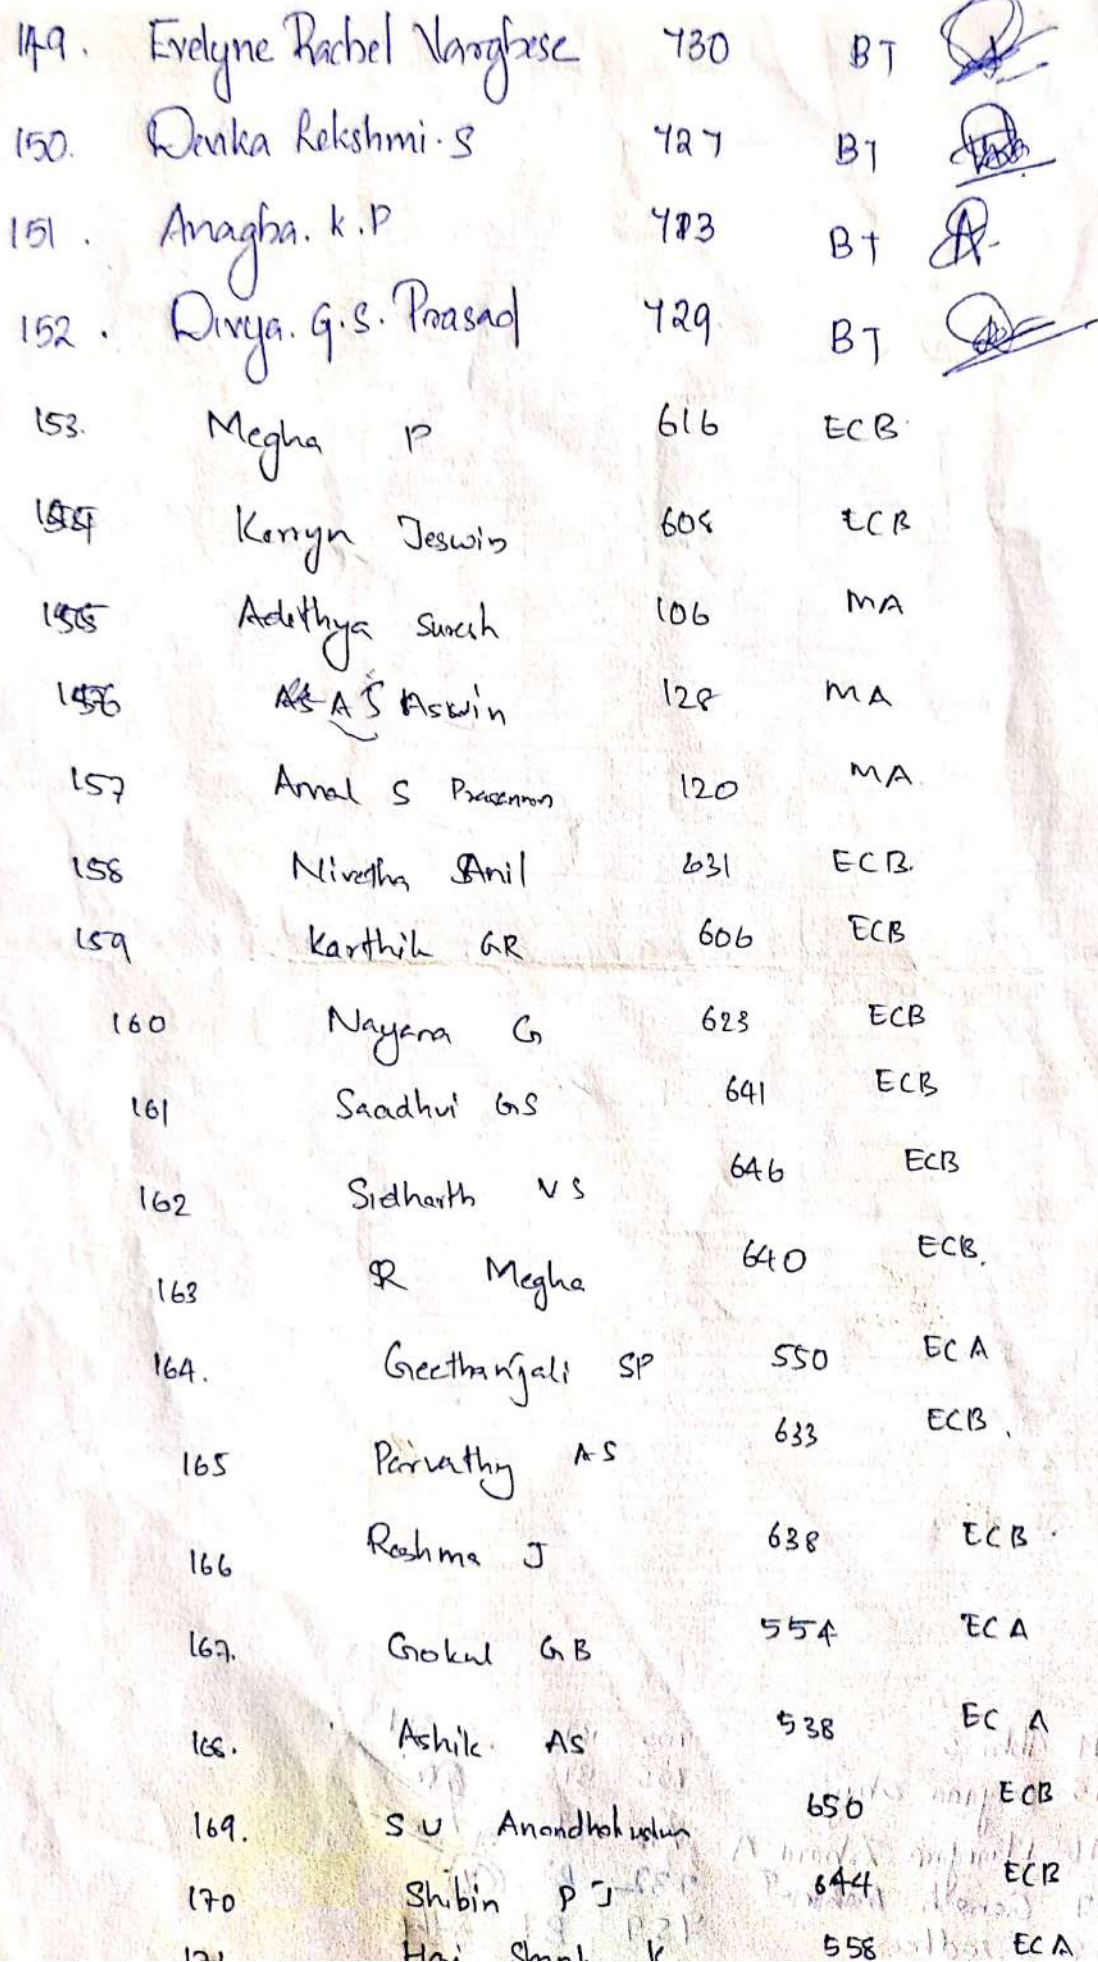 149. Evelyne Rachel Varghese 730 BT
150. Devika Lekshmi. S 727 BT
151. Anagha. K.P 713 BT
152. Divya. G.S. Prasad 729 BT
153. Megha P 616 ECB
154 Kerryn Jeswin 608 ECB
155 Adithya Suresh 106 MA
156 A S Aswin 128 MA
157 Amal S Prasannan 120 MA
158 Nivetha Anil 631 ECB.
159 Karthik GR 606 ECB
160 Nayana G 623 ECB
161 Saadhvi GS 641 ECB
162 Sidharth VS 646 ECB
163 R Megha 640 ECB.
164. Geethanjali SP 550 ECA
165 Parvathy AS 633 ECB.
166 Reshma J 638 ECB.
167. Gokul GB 554 ECA
168. Ashik AS 538 ECA
169. S U 650 ECB
170 Shibin P J 644 ECB
171 K 558 ECA